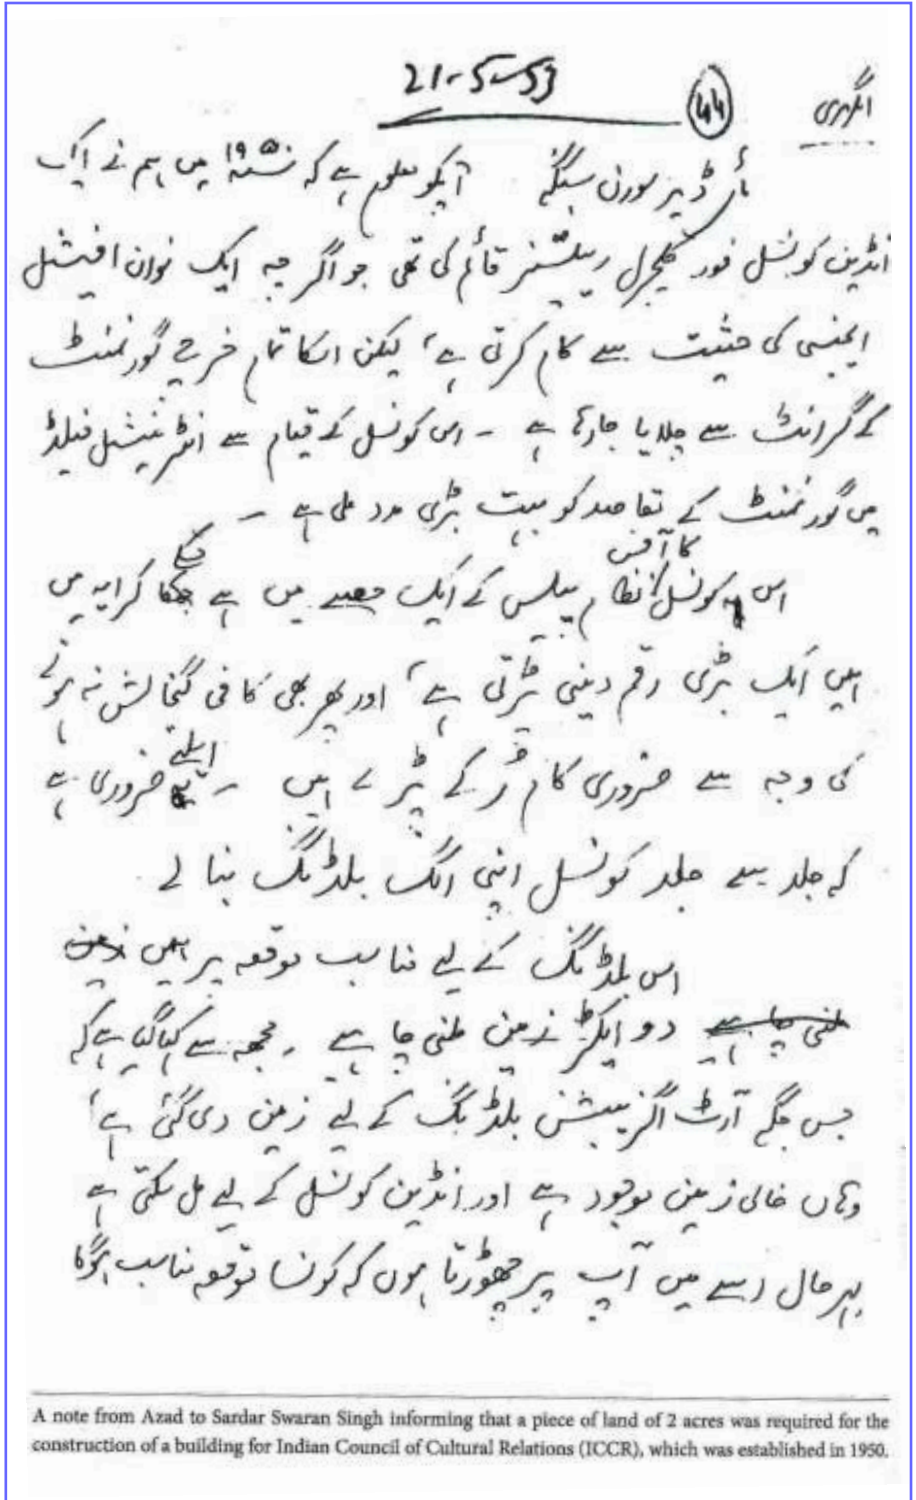 21-5-53
۴۴
انگریزی
مائی ڈیر سورن سنگھ آپکو معلوم ہے کہ ۱۹۵۰ میں ہم نے ایک
انڈین کونسل فور کلچرل ریلیشنز قائم کی تھی جو اگر چہ ایک نوان افیشل
ایجنسی کی حیثیت سے کام کرتی ہے، لیکن اسکا تمام خرچ گورنمنٹ
کے گرانٹ سے چلایا جارہا ہے ۔ اس کونسل کے قیام سے انٹرنیشنل فیلڈ
میں گورنمنٹ کے مقاصد کو بہت بڑی مدد ملی ہے ۔
اس کونسل کا آفس نظام پیلس کے ایک حصے میں ہے جسکے کرایہ میں
ہمیں ایک بڑی رقم دینی پڑتی ہے، اور پھر بھی کافی گنجائش نہ ہونے
کی وجہ سے ضروری کام رُکے پڑے ہیں ۔ اسلئے ضروری ہے
کہ جلد سے جلد کونسل اپنی الگ بلڈنگ بنا لے
اس بلڈنگ کے لیے مناسب موقعہ پر ہمیں زمین
ملنی چاہیے دو ایکڑ زمین ملنی چاہیے ۔ مجھ سے کہا گیا ہے کہ
جس جگہ آرٹ اگزیبیشن بلڈنگ کے لیے زمین دی گئی ہے،
وہاں خالی زمین موجود ہے اور انڈین کونسل کے لیے مل سکتی ہے
بہر حال اسے میں آپ پر چھوڑتا ہوں کہ کونسا موقعہ مناسب ہوگا
A note from Azad to Sardar Swaran Singh informing that a piece of land of 2 acres was required for the
construction of a building for Indian Council of Cultural Relations (ICCR), which was established in 1950.